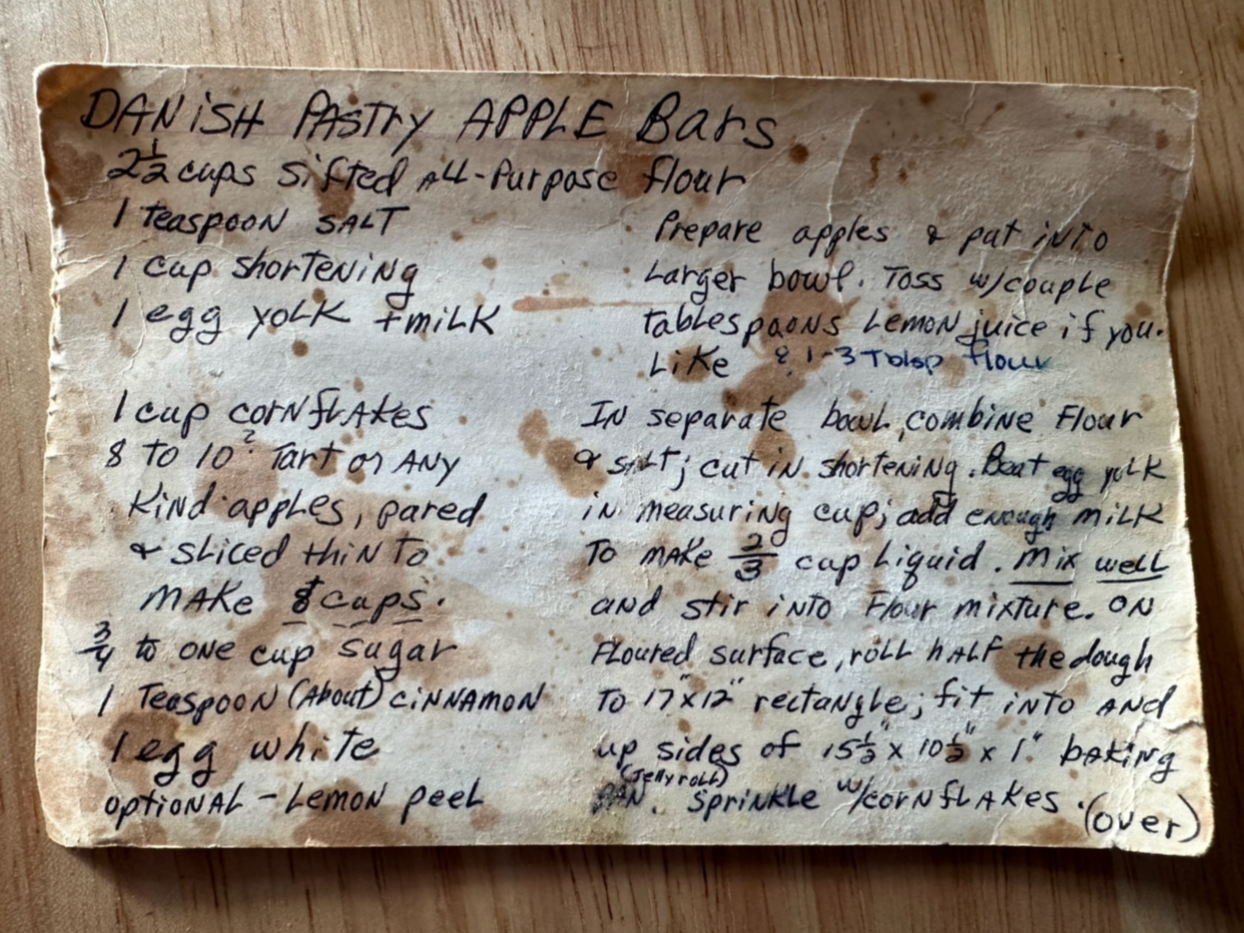 DANiSH PAStry APPLE Bars
2 1/2 cups Sifted ALL-Purpose flour
1 teaspoon SALT
1 cup shortening
1 egg yolk + milk
1 cup cornflakes
8 to 10? Tart or ANY
Kind apples, pared
& sliced thin to
MAKE 8 cups.
3/4 to one cup sugar
1 Teaspoon (About) cinnamon
1 egg white
optional - Lemon peel
Prepare apples & put into
Larger bowl. Toss w/couple
tablespoons Lemon juice if you
Like & 1-3 Tblsp flour
In separate bowl, combine Flour
& salt; cut in shortening. Beat egg yolk
in measuring cup; add enough milk
to make 2/3 cup Liquid. Mix well
and stir into Flour mixture. On
Floured surface, roll half the dough
to 17"x12" rectangle; fit into and
up sides of 15 1/2" x 10 1/2" x 1" baking
(Jelly roll)
PAN. Sprinkle w/cornflakes.
(over)